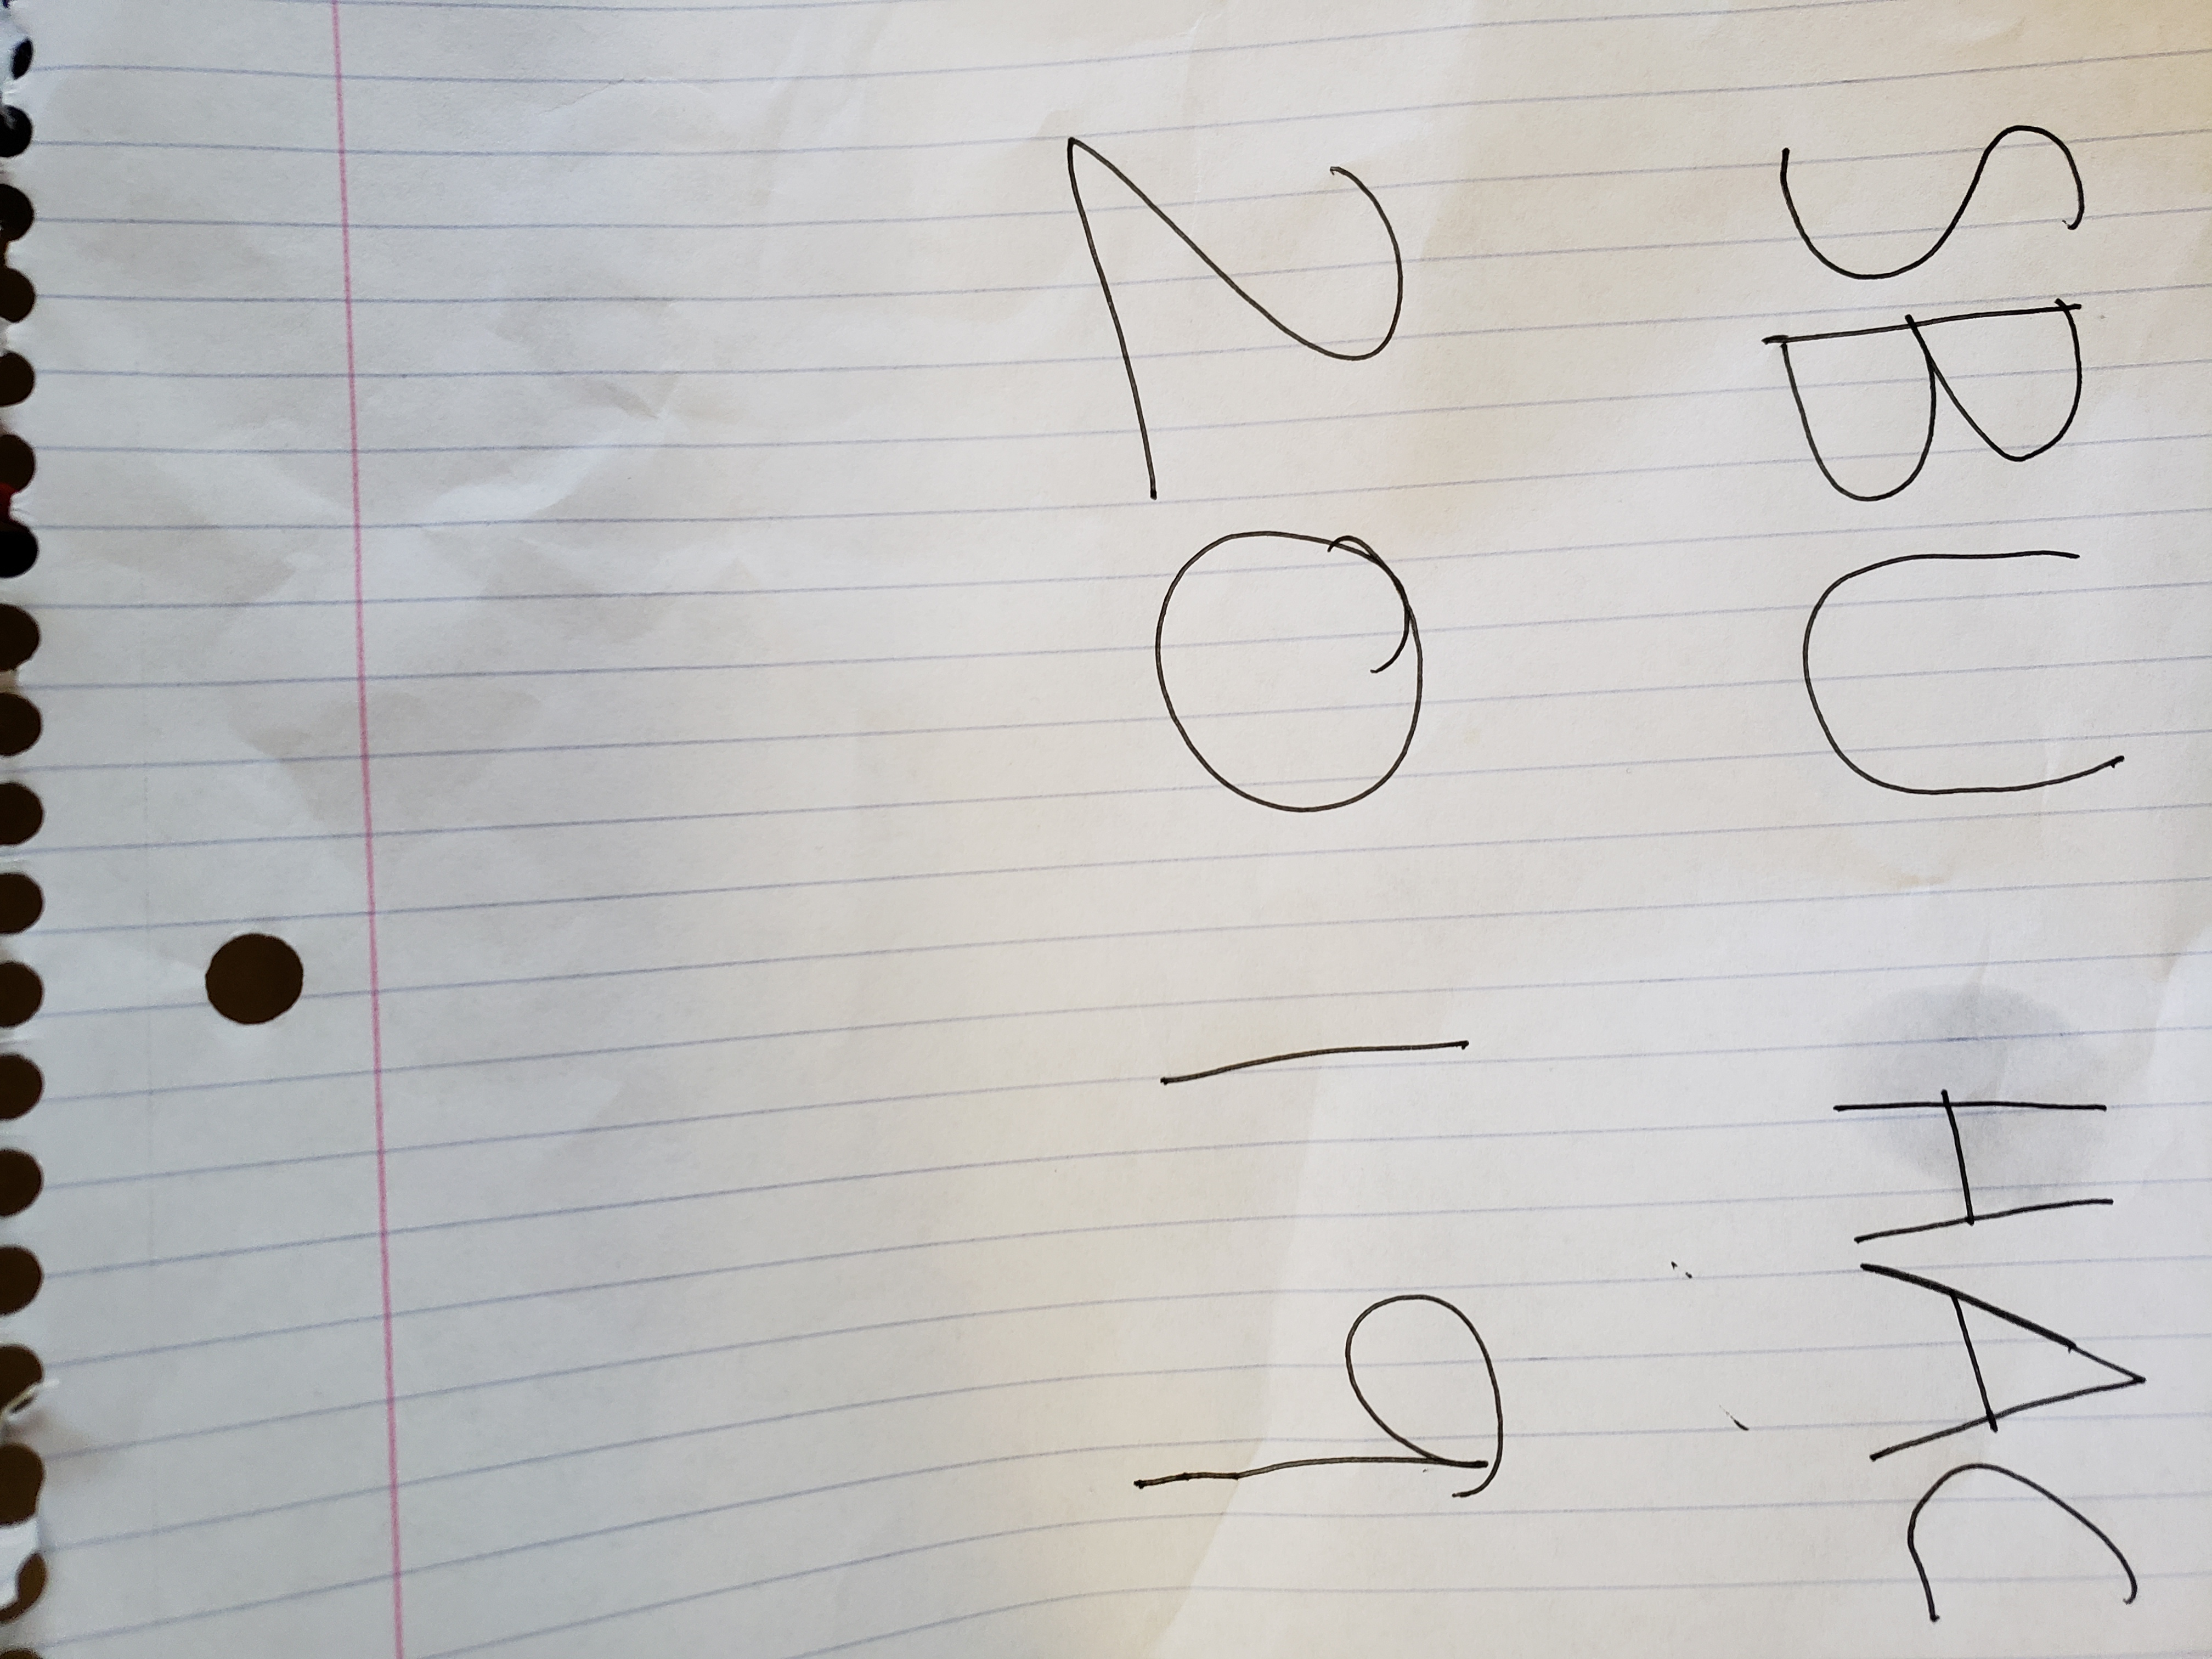 SBU HAC
2019